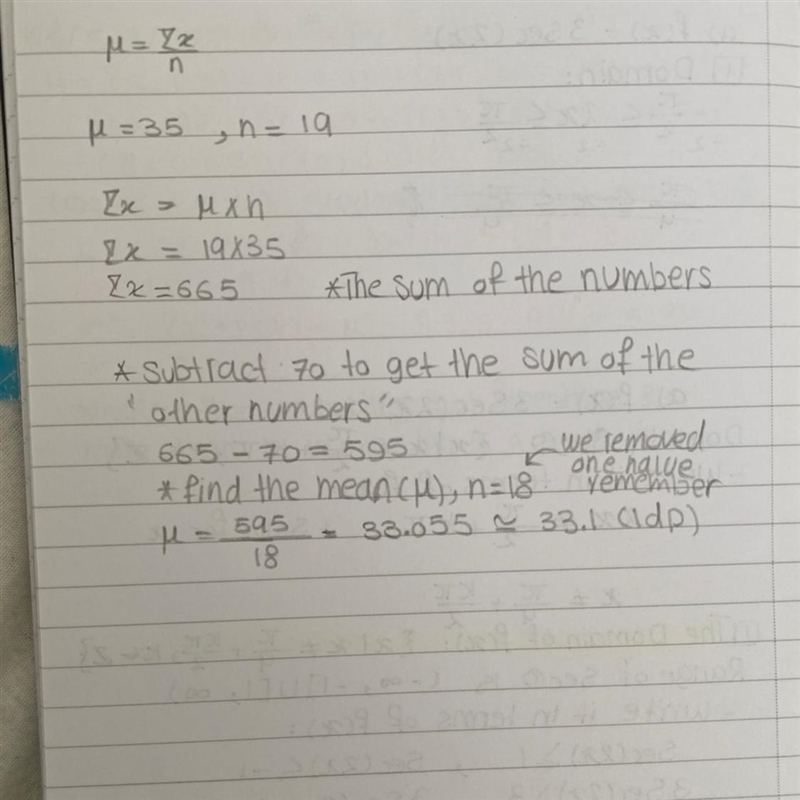 μ = Σx/n
μ = 35 , n = 19
Σx = μ x n
Σx = 19 x 35
Σx = 665 *The sum of the numbers
* subtract 70 to get the sum of the
"other numbers"
665 - 70 = 595
we removed
one nalue
* find the mean(μ), n=18 remember
μ = 595/18 = 33.055 ≃ 33.1 (1dp)